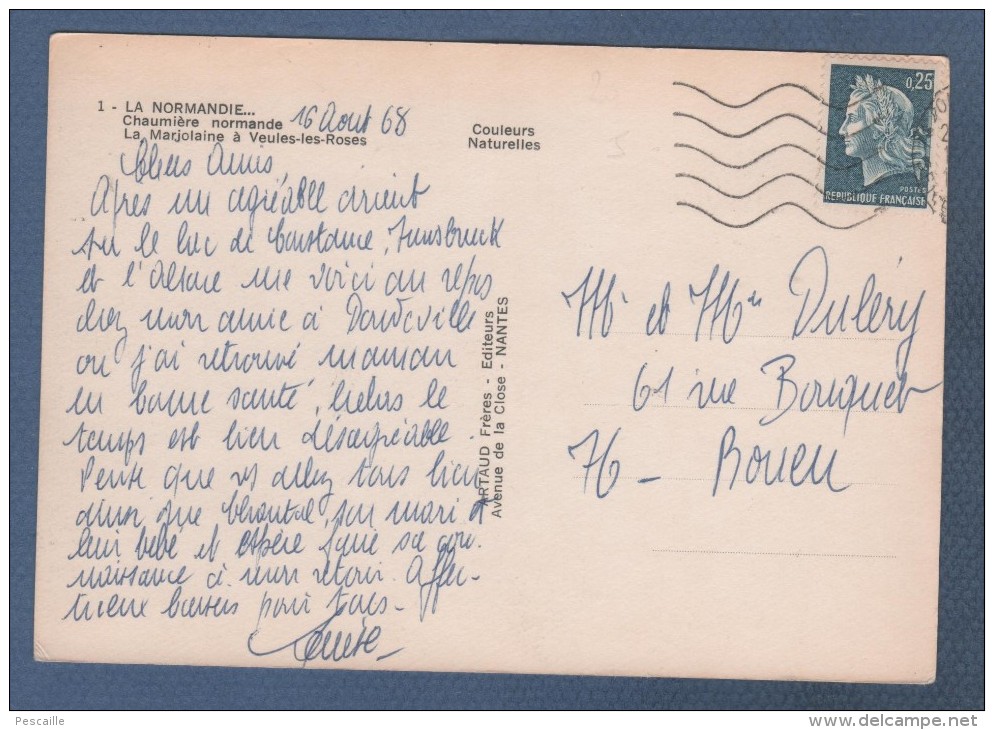 1 - LA NORMANDIE...
Chaumière normande
La Marjolaine à Veules-les-Roses
16 Aout 68
Couleurs
Naturelles
0,25
POSTES
REPUBLIQUE FRANÇAISE
Chers Amis,
Après un agréable circuit
sur le lac de Constance, Innsbruck
et l'Alsace me voici au repos
chez mon amie à Doudeville
où j'ai retrouvé maman
en bonne santé, hélas le
temps est bien désagréable.
Pense que vs allez tous bien
ainsi que Chantal, son mari et
leur bébé et espère faire sa con-
naissance à mon retour. Affec-
tueux baisers pour tous -
ARTAUD Frères - Editeurs
Avenue de la Close - NANTES
Mr et Mme Duléry
61 rue Bouquet
76 - Rouen
Pescaille
www.delcampe.net